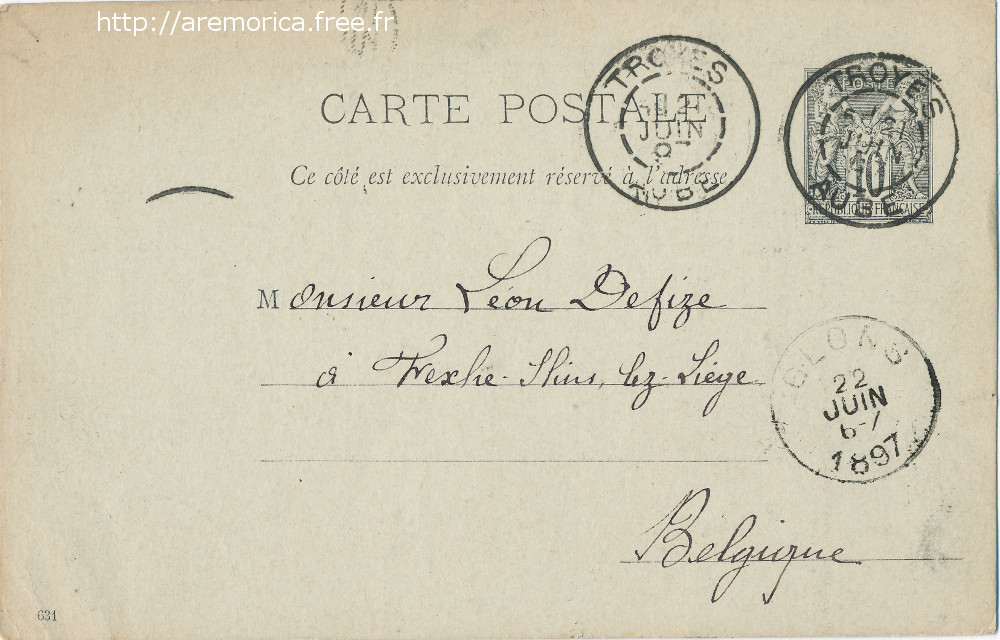 http://aremorica.free.fr
CARTE POSTALE
Ce côté est exclusivement réservé à l'adresse
TROYES
JUIN
AUBE
TROYES
21
JUIN
AUBE
POSTES
10
REPUBLIQUE FRANÇAISE
Monsieur Léon Defize
à Frexhe-Slins, lez-Liège
GLONS
22
JUIN
6-7
1897
Belgique
631